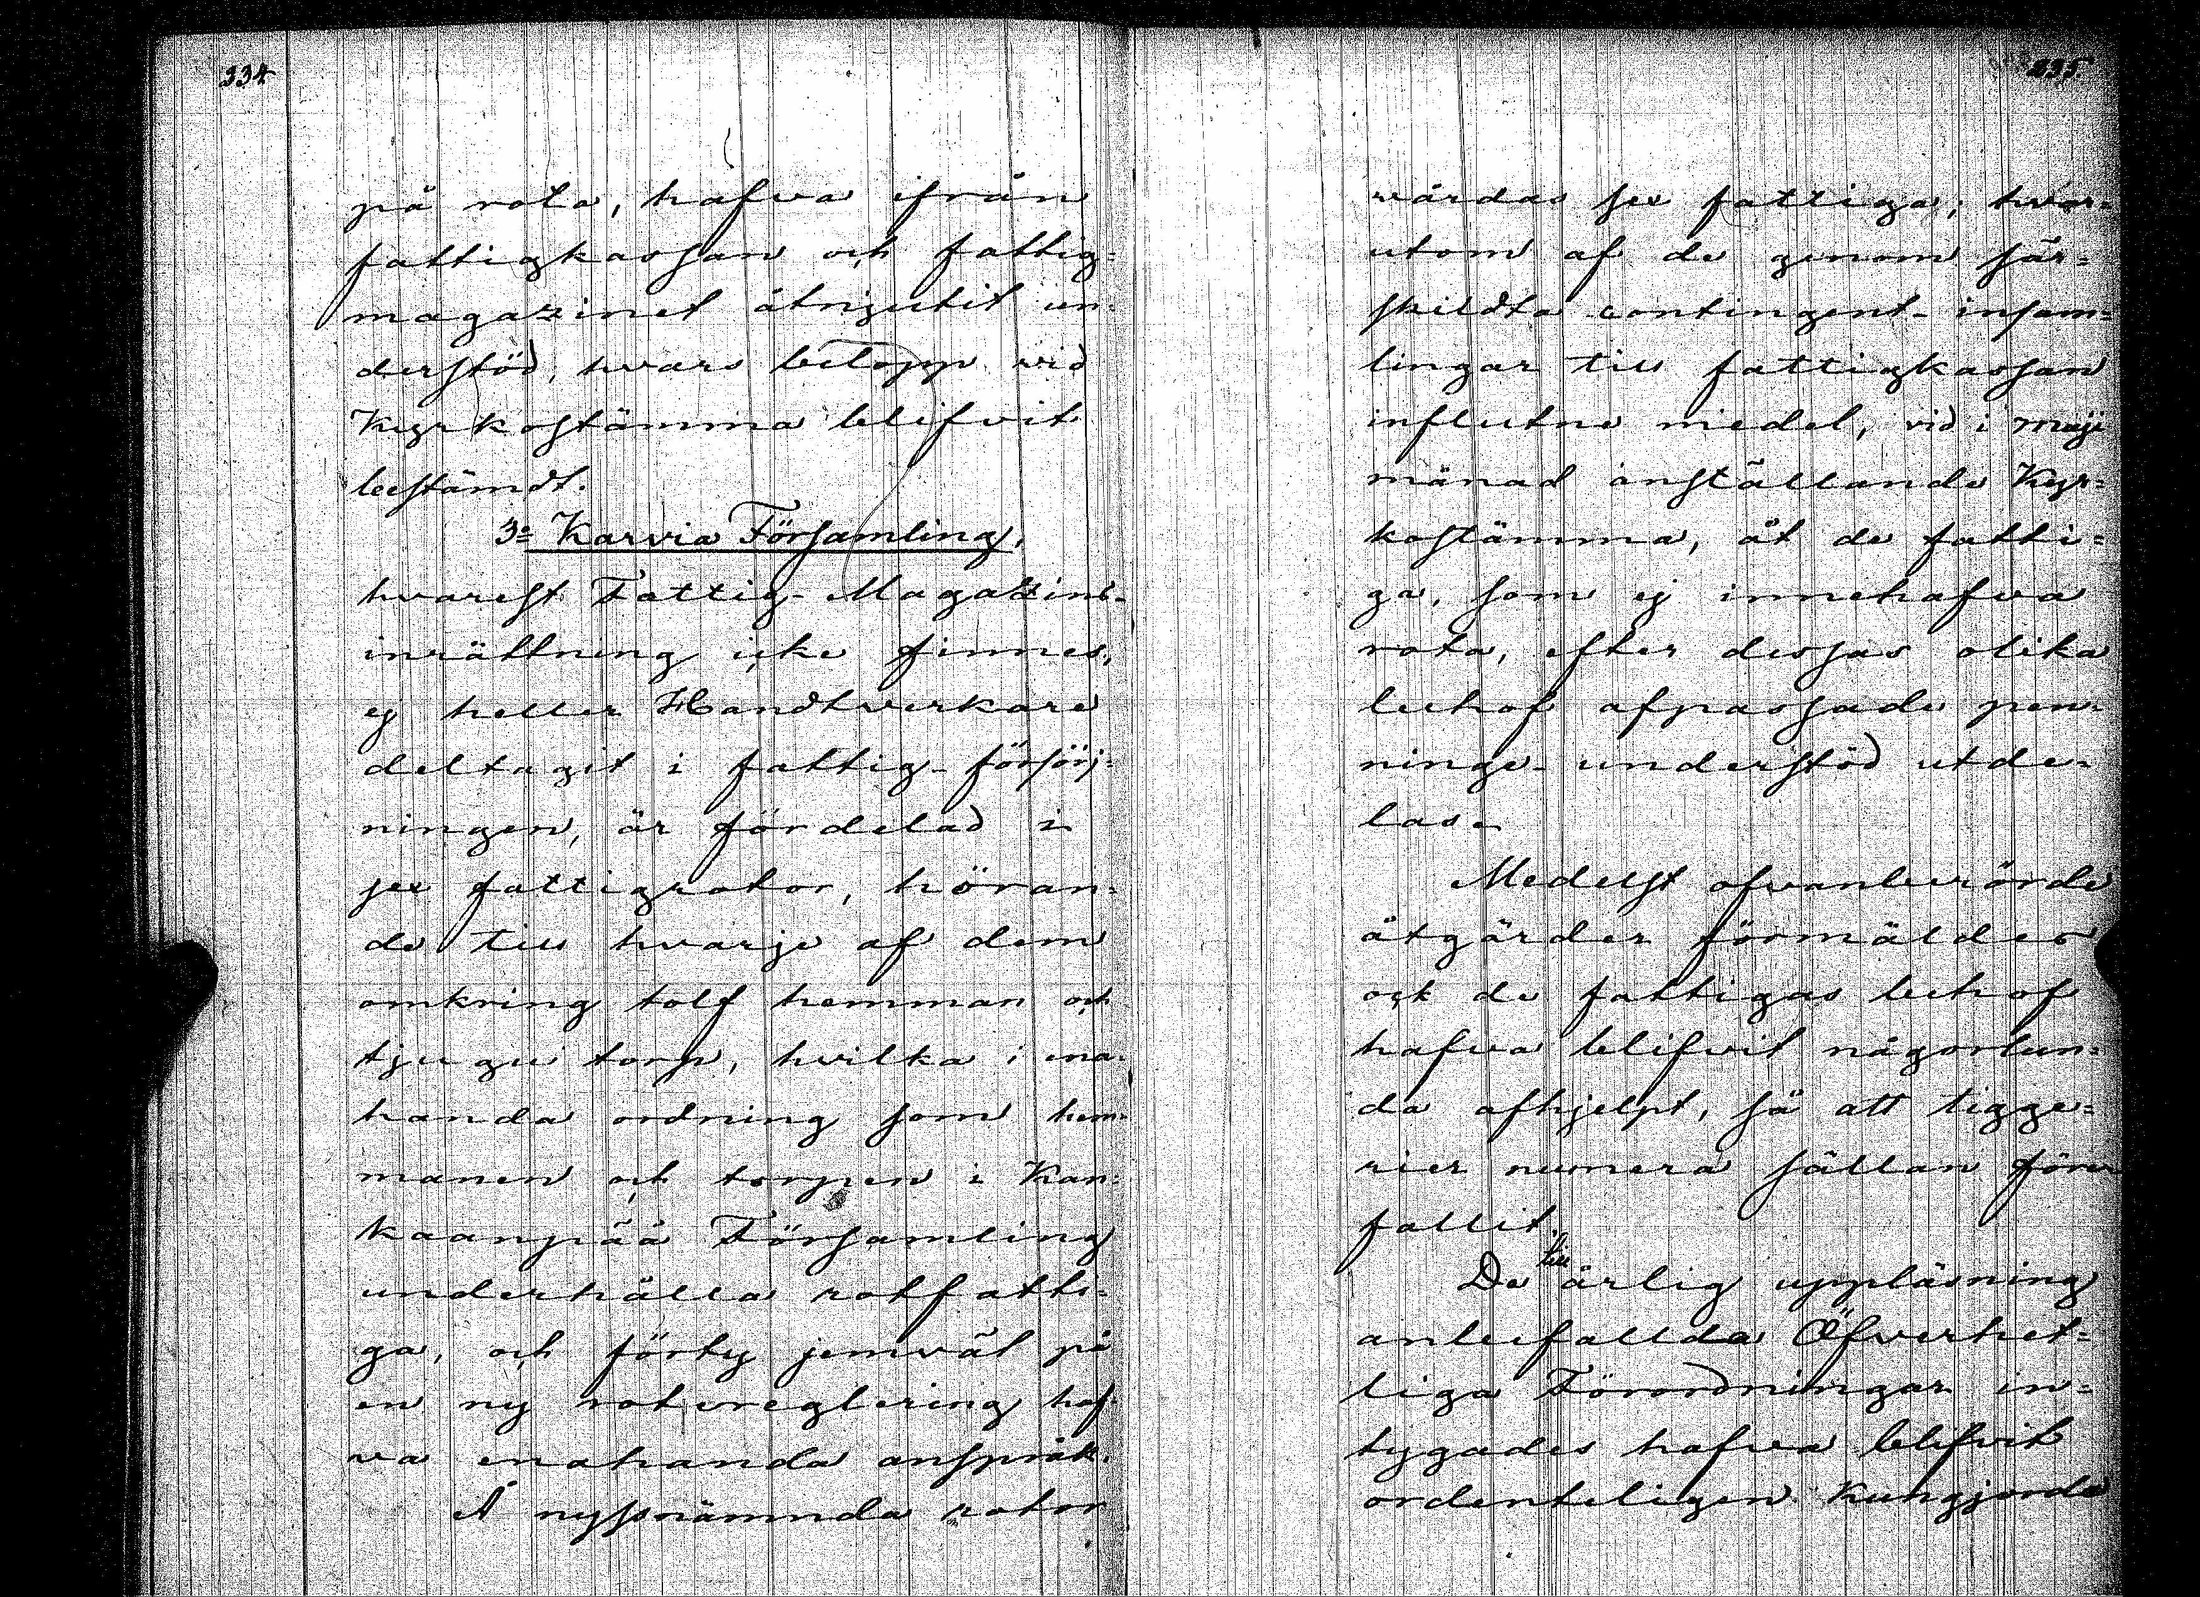 334
på rota, hafva ifrån
fattigkassan och fattig=
magazinet åtnjutit un=
derstöd, hvars belopp vid
Kyrkostämma blifvit
bestämdt.
3o Karvia Församling,
hvarest Fattig-Magazins-
inrättning icke finnes,
ej heller Handtverkare
deltagit i fattig-försörj=
ningen, är fördelad i
sex fattigrotor, höran=
de till hvarje af dem
omkring tolf hemman och
tjugu torp, hvilka i ena=
handa ordning som hem=
manen och torpen i Kan=
kaanpää Församling
underhålla rotfatti=
ga, och förty jemväl på
en ny rotereglering haf=
va enahanda anspråk.
Å nyssnämnda rotor
335
vårdas sex fattiga, hvar=
utom af de genom sär=
skildta contingent-insam=
lingar till fattigkassan
influtne medel, vid i maji
månad anställande Kyr=
kostämma, åt de fatti=
ga, som ej innehafva
rota, efter dessas olika
behof afpassade pen=
ninge-understöd utde=
las.
Medelst ofvanberörde
åtgärder förmäldes
ock de fattigas behof
hafva blifvit någorlun=
da afhjelpt, så att tigge=
rier numera sällan före
fallit.
De till årlig uppläsning
anbefallda Öfverhet=
liga Förordningar in=
tygades hafva blifvit
ordenteligen kungjorde